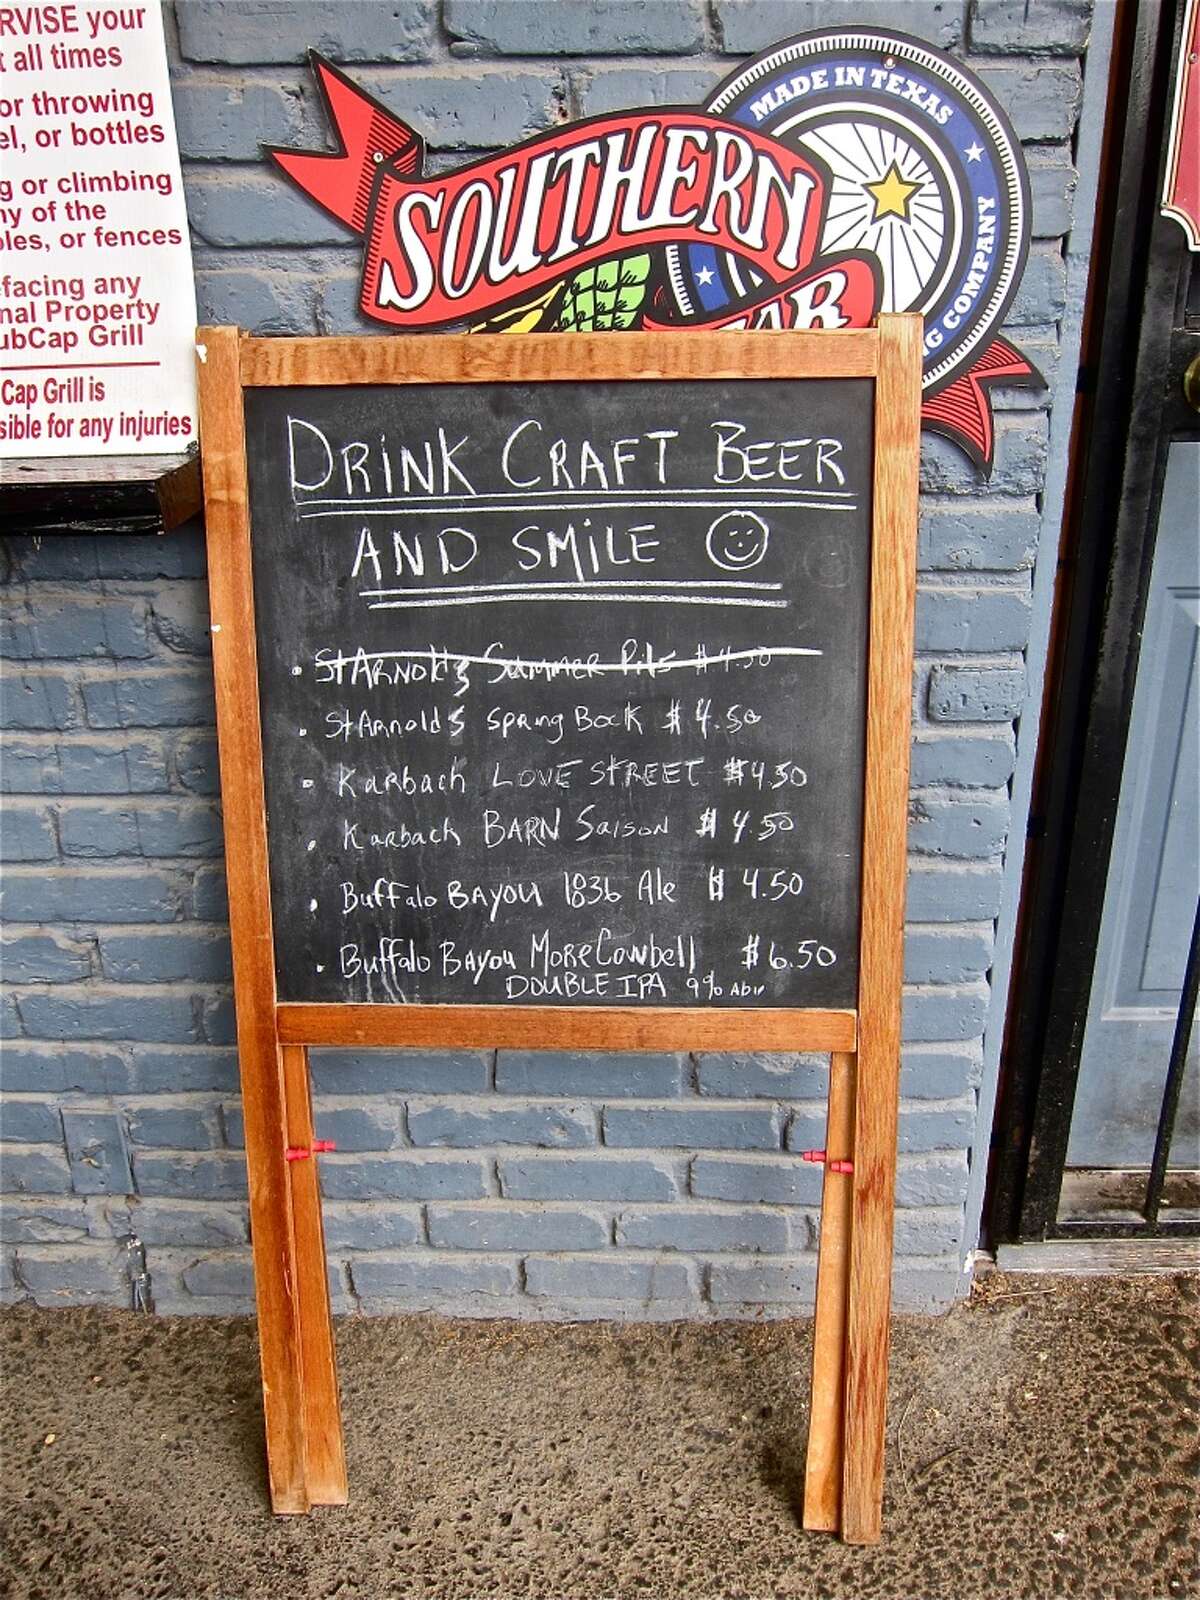 RVISE your
t all times
or throwing
el, or bottles
g or climbing
ny of the
oles, or fences
efacing any
nal Property
ubCap Grill
Cap Grill is
sible for any injuries
MADE IN TEXAS
SOUTHERN
TAR
NG COMPANY
DRINK CRAFT BEER
AND SMILE
• StARNOld's Summer Pils $4.50
• StArnold's Spring Bock $4.50
• Karbach LOVE STREET $4.50
• Karbach BARN Saison $4.50
• Buffalo BAYOU 1836 Ale $4.50
• Buffalo BAYOU More Cowbell $6.50
DOUBLE IPA 9% Abv